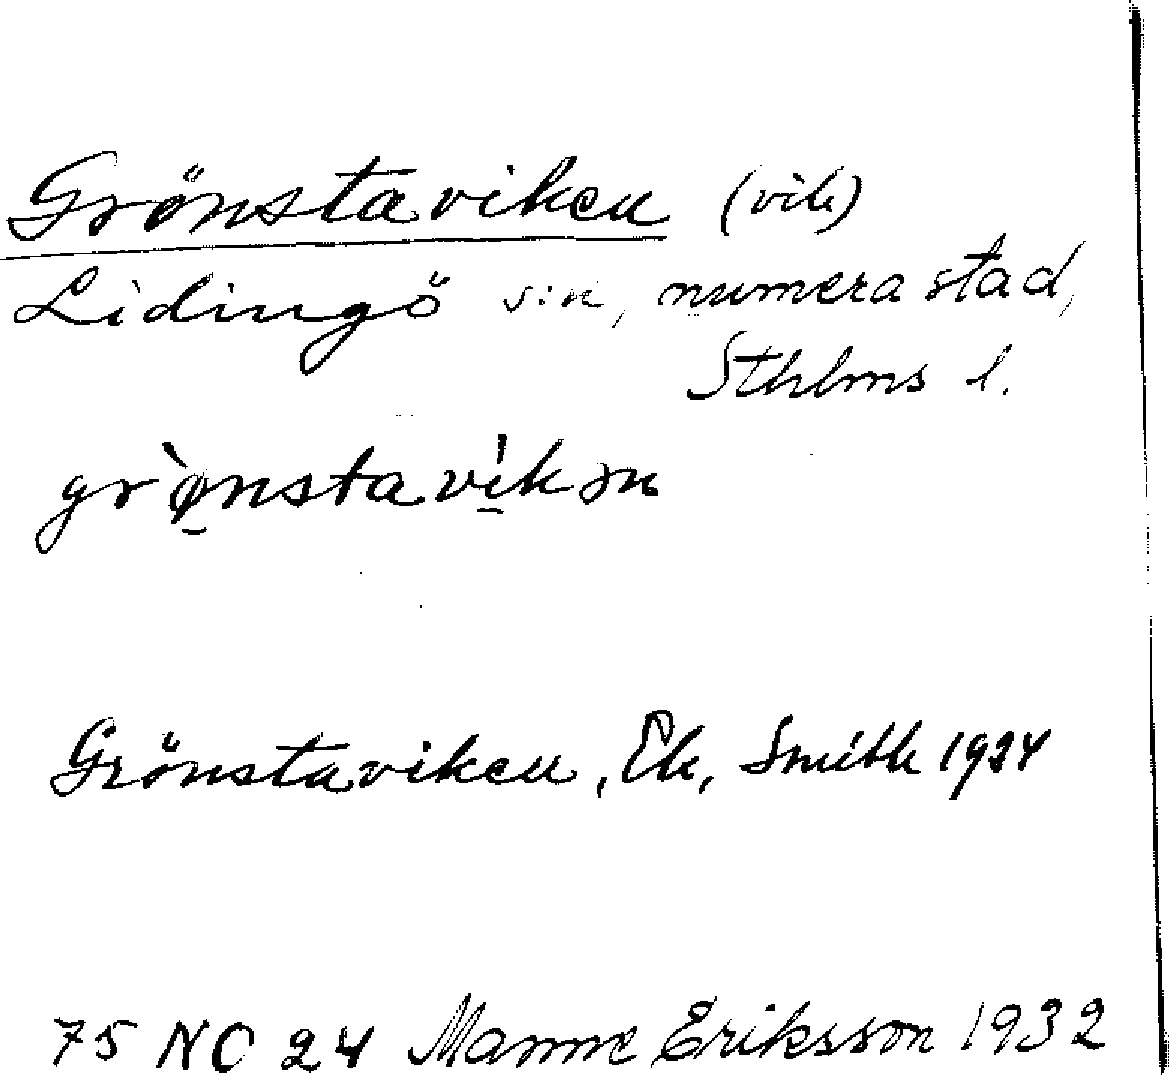 Grönstaviken (vik)
Lidingö s:n, numera stad,
Sthlms l.
grø̀nstavíkən
Grönstaviken, Ek, Smith 1924
75 NO 24 Manne Eriksson 1932